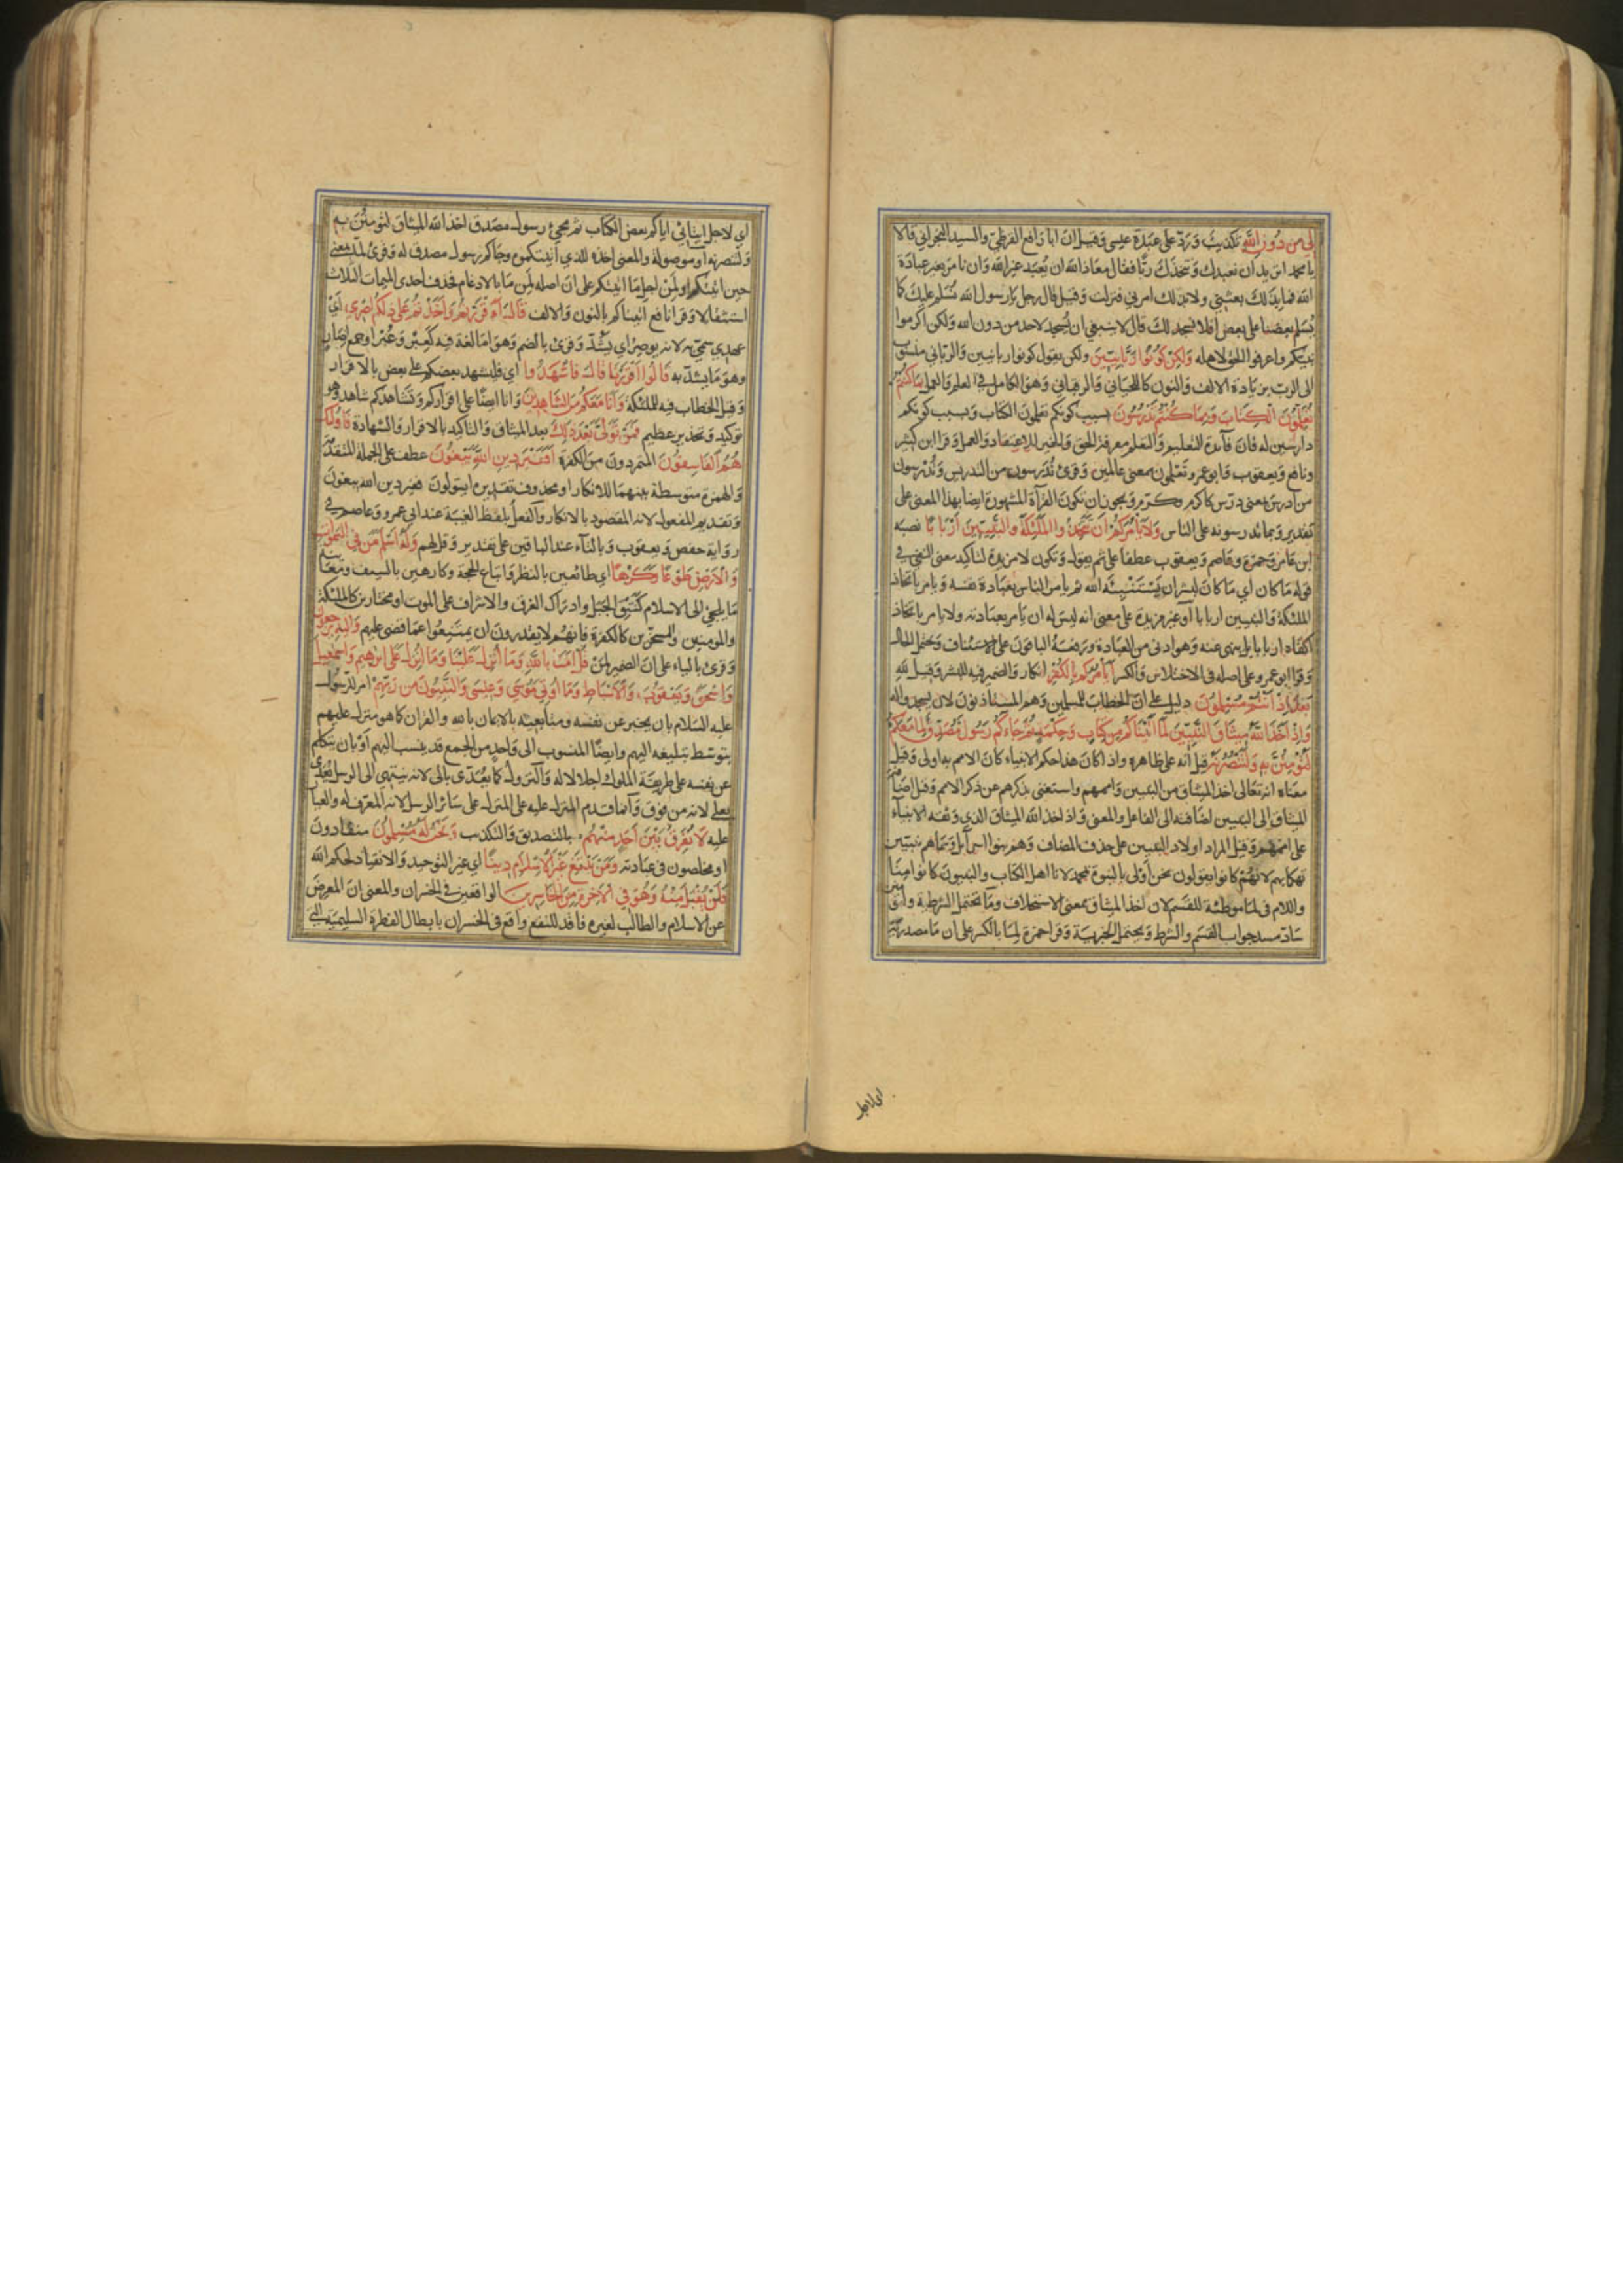 لي من دون الله تكذيب ورد على عبدة عيسى وقيل ان ابا رافع القرظي والسيد النجراني قالا
يا محمد اتريد ان نعبدك ونتخذك ربا فقال معاذ الله ان يعبد غير الله وان نامر بغير عبادة
الله فما بذلك بعثني ولا بذلك امرني فنزلت وقيل قال رجل يا رسول الله نسلم عليك كما
يسلم بعضنا على بعض افلا نسجد لك قال لا ينبغي ان يسجد لاحد من دون الله ولكن اكرموا
نبيكم واعرفوا الحق لاهله ولكن كونوا ربانيين ولكن يقول كونوا ربانيين والرباني منسوب
الى الرب بزيادة الالف والنون كاللحياني والرقباني وهو الكامل في العلم والعمل بما كنتم
تعلمون الكتاب وبما كنتم تدرسون بسبب كونكم تعلمون الكتاب وبسبب كونكم
دارسين له فان فائدة التعليم والتعلم معرفة الحق والخير للاعتقاد والعمل وقرا ابن كثير
ونافع ويعقوب وابو عمرو تعلمون بمعنى عالمين وقرئ تدرسون من التدريس وتدرسون
من ادرس بمعنى درس كاكرم وكرم ويجوز ان تكون القرآة المشهورة ايضا بهذا المعنى على
تقدير وبما تدرسونه على الناس ولا يامركم ان تتخذوا الملئكة والنبيين اربابا نصبه
ابن عامر وحمزة وعاصم ويعقوب عطفا على ثم يقول وتكون لا مزيدة لتاكيد معنى النفي في
قوله ما كان اي ما كان لبشر ان يستنبئه الله ثم يامر الناس بعبادة نفسه ويامر باتخاذ
الملئكة والنبيين اربابا او غير مزيدة على معنى انه ليس له ان يامر بعبادته ولا يامر باتخاذ
اكفائه اربابا بل ينهى عنه وهو ادنى من العبادة ورفعه الباقون على الاستئناف ويحتمل الحال
وقرا ابو عمرو على اصله في الاختلاس والكسر ايامركم بالكفر انكار والضمير فيه للبشر وقيل لله
بعد اذ انتم مسلمون دليل على ان الخطاب للمسلمين وهم المستاذنون لان يسجدوا له
واذ اخذ الله ميثاق النبيين لما اتيناكم من كتاب وحكمة ثم جاءكم رسول مصدق لما معكم
لتؤمنن به ولتنصرنه قيل انه على ظاهره واذا كان هذا حكم الانبياء كان الامم به اولى وقيل
معناه انه تعالى اخذ الميثاق من النبيين واممهم واستغنى بذكرهم عن ذكر الامم وقيل اضافة
الميثاق الى النبيين اضافته الى الفاعل والمعنى واذ اخذ الله الميثاق الذي وثقه الانبياء
على اممهم وقيل المراد اولاد النبيين على حذف المضاف وهم بنوا اسرآئل وسماهم نبيين
تهكما بهم لانهم كانوا يقولون نحن اولى بالنبوة من محمد لانا اهل الكتاب والنبيون كانوا منا
واللام في لما موطئة للقسم لان اخذ الميثاق بمعنى الاستحلاف وما تحتمل الشرطية ولتؤمنن
ساد مسد جواب القسم والشرط وتحتمل الخبرية وقرا حمزة لما بالكسر على ان ما مصدرية
اي لاجل
اي لاجل ايتائي اياكم بعض الكتاب ثم مجيئ رسول مصدق اخذ الله الميثاق لتؤمنن به
ولتنصرنه او موصولة والمعنى اخذه للذي اتيتكموه وجاكم رسول مصدق له وقرئ لما بمعنى
حين اتيتكم او لمن اجل ما اتيتكم على ان اصله لمن ما بالادغام فحذف احدى الميمات الثلاث
استثقالا وقرا نافع اتيناكم بالنون والالف قال أأقررتم واخذتم على ذلكم اصري اي
عهدي سمي به لانه يوصر اي يشد وقرئ بالضم وهو اما لغة فيه كعبر وعبر او جمع اصار
وهو ما يشد به قالوا اقررنا قال فاشهدوا اي فليشهد بعضكم على بعض بالاقرار
وقيل الخطاب فيه للملئكة وانا معكم من الشاهدين وانا ايضا على اقراركم وتشاهدكم شاهد وهو
توكيد وتحذير عظيم فمن تولى بعد ذلك بعد الميثاق والتاكيد بالاقرار والشهادة فاولئك
هم الفاسقون المتمردون من الكفرة افغير دين الله يبغون عطف على الجملة المتقدمة
والهمزة متوسطة بينهما للانكار او محذوف تقديره ايتولون فغير دين الله يبغون
وتقديم المفعول لانه المقصود بالانكار والفعل بلفظ الغيبة عند ابي عمرو وعاصم في
رواية حفص ويعقوب وبالتآء عند الباقين على تقدير وقل لهم وله اسلم من في السموات
والارض طوعا وكرها اي طائعين بالنظر واتباع الحجة وكارهين بالسيف ومعاينة
ما يلجئ الى الاسلام كنتق الجبل وادراك الغرق والاشراف على الموت او مختارين كالملئكة
والمومنين والمسخرين كالكفرة فانهم لا يقدرون ان يمتنعوا عما قضى عليهم واليه ترجعون
وقرئ بالياء على ان الضمير لمن قل امنا بالله وما انزل علينا وما انزل على ابرهيم واسمعيل
واسحق ويعقوب والاسباط وما اوتي موسى وعيسى والنبيون من ربهم امر للرسول
عليه السلام بان يخبر عن نفسه ومتابعيه بالايمان بالله والقران كما هو منزل عليهم
بتوسط تبليغه اليهم وايضا المنسوب الى واحد من الجمع قد ينسب اليهم او بان يتكلم
عن نفسه على طريقة الملوك اجلالا له والنزول كما يعدى بالى لانه ينتهي الى الرسل يعدى
بعلى لانه من فوق وانما قدم المنزل عليه على المنزل على سائر الرسل لانه المعرف له والعيار
عليه لا نفرق بين احد منهم بالتصديق والتكذيب ونحن له مسلمون منقادون
او مخلصون في عبادته ومن يبتغ غير الاسلام دينا اي غير التوحيد والانقياد لحكم الله
فلن يقبل منه وهو في الاخرة من الخاسرين الواقعين في الخسران والمعنى ان المعرض
عن الاسلام والطالب لغيره فاقد للنفع واقع في الخسران بابطال الفطرة السليمة التي